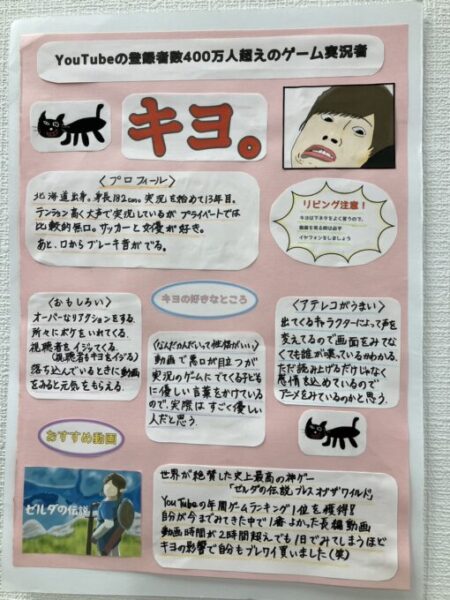 YouTubeの登録者数400万人超えのゲーム実況者
キヨ。
〈プロフィール〉
北海道出身。身長182cm。実況を始めて13年目。
テンション高く大声で実況しているがプライベートでは
比較的無口。サッカーと女優が好き。
あと、口からブレーキ音がでる。
リビング注意！
キヨは下ネタをよく言うので、
動画を見る際は必ず
イヤフォンをしましょう
〈おもしろい〉
オーバーなリアクションをする
所々にボケをいれてくる
視聴者をイジってくる
(視聴者もキヨをイジる)
落ち込んでいるときに動画
をみると元気をもらえる
キヨの好きなところ
〈なんだかんだいって性格がいい〉
動画で悪口が目立つが
実況のゲームにでてくる子ども
に優しい言葉をかけている
ので、実際はすごく優しい
人だと思う.
〈アテレコがうまい〉
出てくるキャラクターによって声を
変えてるので画面をみてな
くても誰が喋っているかわかる.
ただ読み上げるだけじゃなく
感情を込めているので
アニメをみているのかと思う.
おすすめ動画
ゼルダの伝説
世界が絶賛した史上最高の神ゲー
「ゼルダの伝説ブレスオブザワイルド」
YouTubeの年間ゲームランキング1位を獲得!!
自分が今までみてきた中で1番よかった長編動画
動画時間が2時間超えでも1日でみてしまうほど
キヨの影響で自分もブレワイ買いました(笑)